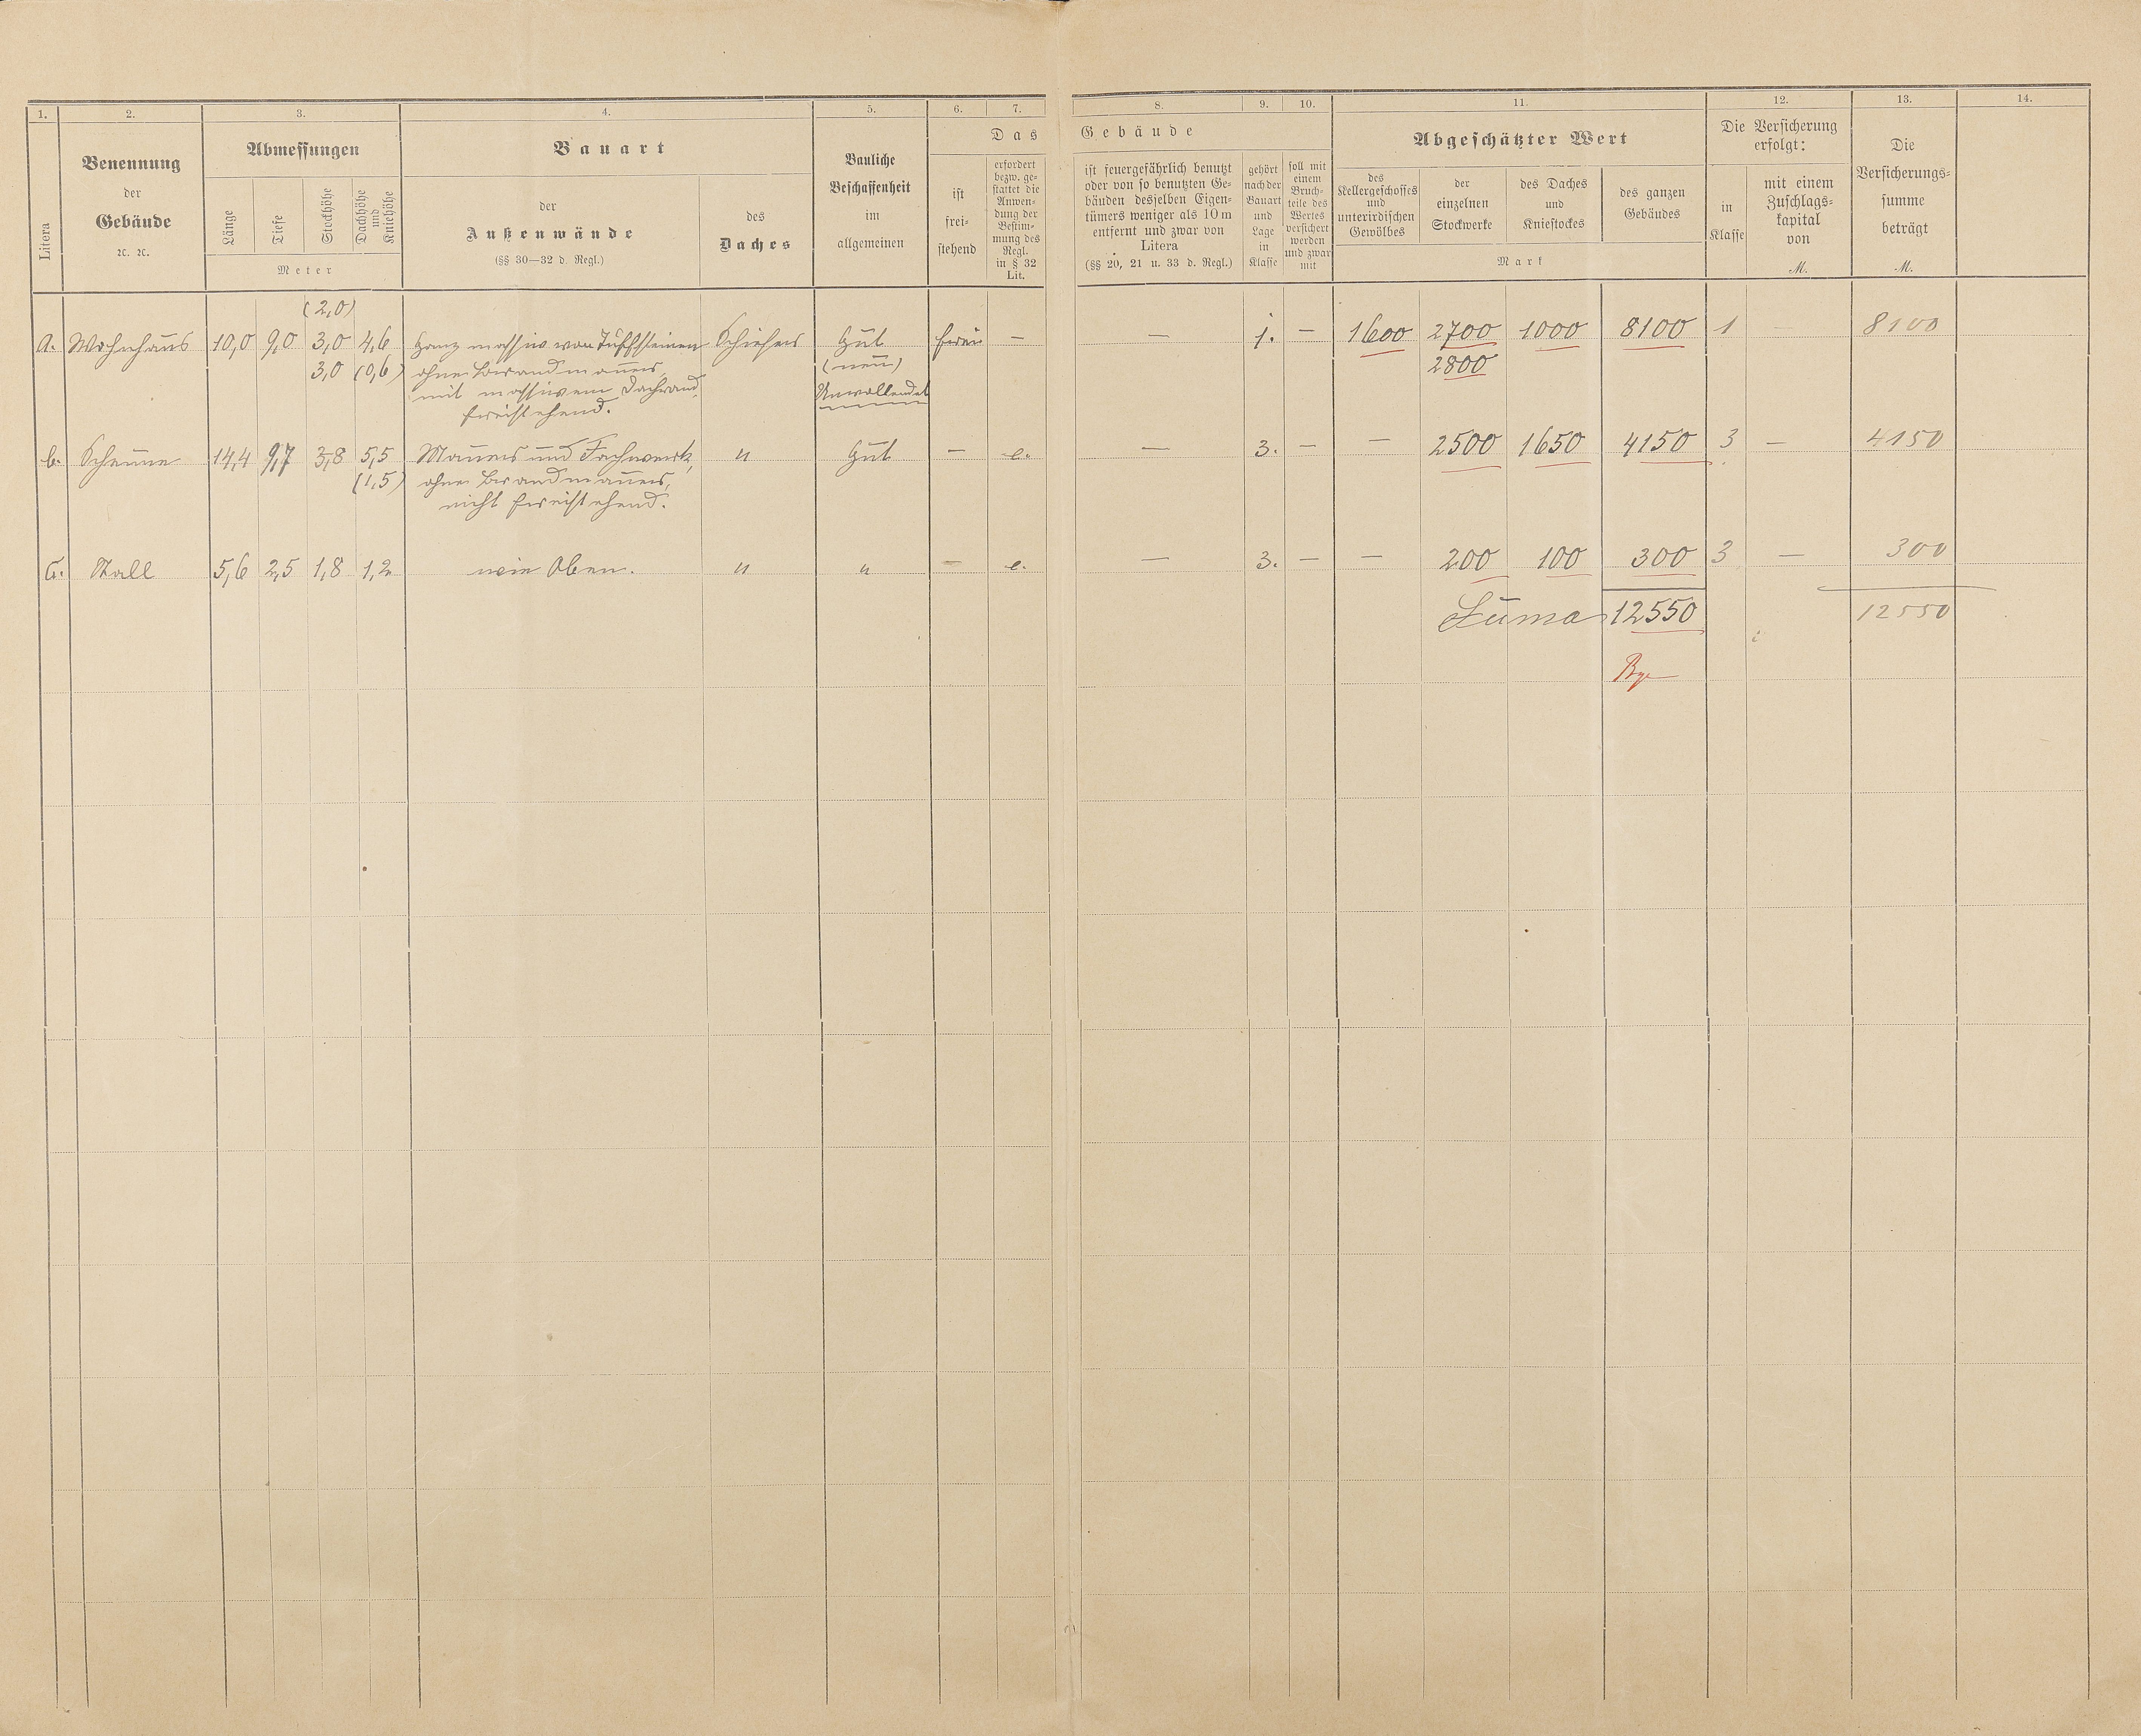 1. 2. 3. 4. 5. 6. 7. 8. 9. 10. 11. 12. 13. 14.
Litera
Benennung
der
Gebäude
ꝛc. ꝛc.
Abmessungen
Länge
Tiefe
Stockhöhe
Dachhöhe
und
Kniehöhe
Meter
Bauart
der
Außenwände
(§§ 30—32 d. Regl.)
des
Daches
Bauliche
Beschaffenheit
im
allgemeinen
Das Gebäude
ist
frei-
stehend
erfordert
bezw. ge-
stattet die
Anwen-
dung der
Bestim-
mung des
Regl.
in § 32
Lit.
ist feuergefährlich benutzt
oder von so benutzten Ge-
bäuden desselben Eigen-
tümers weniger als 10 m
entfernt und zwar von
Litera
(§§ 20, 21 u. 33 d. Regl.)
gehört
nach der
Bauart
und
Lage
in
Klasse
soll mit
einem
Bruch-
teile des
Wertes
versichert
werden
und zwar
mit
Abgeschätzter Wert
des
Kellergeschosses
und
unterirdischen
Gewölbes
der
einzelnen
Stockwerke
des Daches
und
Kniestockes
des ganzen
Gebäudes
Mark
Die Versicherung
erfolgt:
in
Klasse
mit einem
Zuschlags-
kapital
von
M.
Die
Versicherungs-
summe
beträgt
M.
(2,0)
a. Wohnhaus 10,0 9,0 3,0 4,6 Ganz massiv von Tuffsteinen Schiefer Gut frei — — 1. — 1600 2700 1000 8100 1 — 8100
3,0 (0,6) ohne Brandmauer, (neu) 2800
mit massivem Dachrand, Unvollendet
freistehend.
b. Scheune 14,4 9,7 3,8 5,5 Mauer und Fachwerk, " Gut — e. — 3. — — 2500 1650 4150 3 — 4150
(1,5) ohne Brandmauer,
nicht freistehend.
c. Stall 5,6 2,5 1,8 1,2 wie Oben. " " — e. — 3. — — 200 100 300 3 — 300
Suma 12550 12550